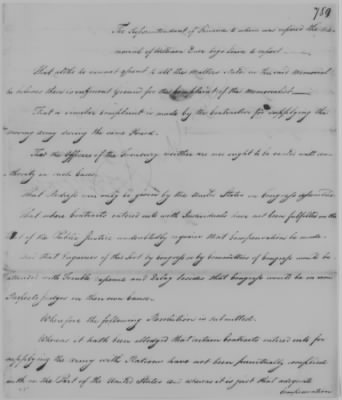 789
The Superintendant of Finance to whom was referred the Me-
morial of William Duer begs leave to report
That altho he cannot speak to all the Matters stated in the said Memorial
he believes there is sufficient ground for the Complaint of the Memorialist
That a similar complaint is made by the Contractors for supplying the
moving Army during the same Period.
That the Officers of the Treasury neither are nor ought to be vested with au-
thority in such Cases.
That Redress can only be given by the United States in Congress assembled
that where Contracts entered into with Individuals have not been fulfilled on the
Part of the Public Justice undoubtedly requires that Compensation be made
And that Enquiries of this sort by Congress or by Committees of Congress would be
attended with Trouble expence and Delay besides that Congress would be in some
Respects Judges in their own Cause.
Wherefore the following Resolution is submitted.
Whereas it hath been alledged that certain Contracts entered into for
supplying the Army with Rations have not been punctually complied
with on the Part of the United States and whereas it is just that adequate
Compensation